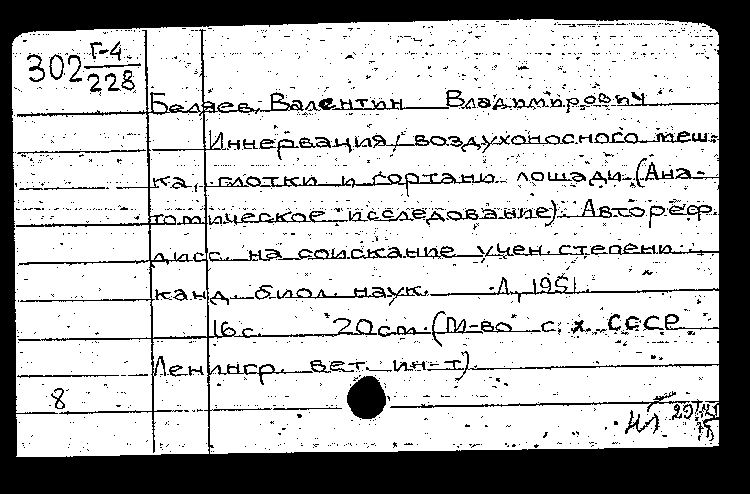 302 Г-4/228
Беляев, Валентин Владимирович
Иннервация воздухоносного меш-
ка, глотки и гортани лошади. (Ана-
томическое исследование). Автореф.
дисс. на соискание учен. степени
канд. биол. наук. Л., 1951.
16 с. 20 см. (М-во с. х. СССР
Ленингр. вет. ин-т).
8